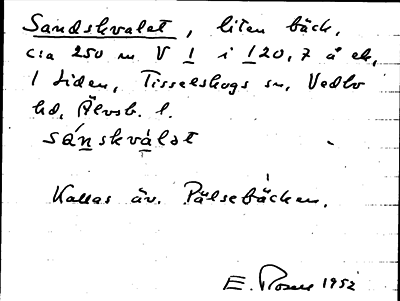 Sandskvalet, liten bäck,
c:a 250 m V 1 i 120,7 å ek,
1 Liden, Tisselskogs sn, Vedbo
hd, Älvsb. l.
sánskvàlət
Kallas äv. Pälsebäcken.
E. Rosen 1952